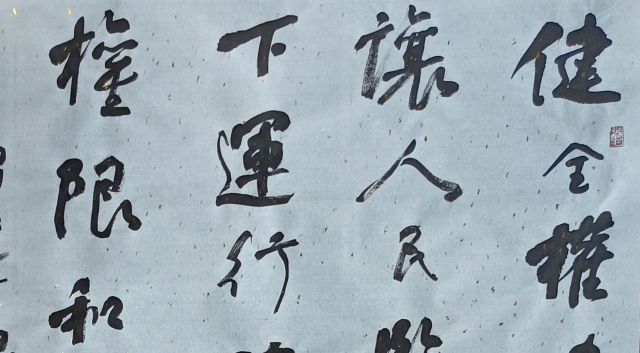 健全權
讓人民
下運行
權限和